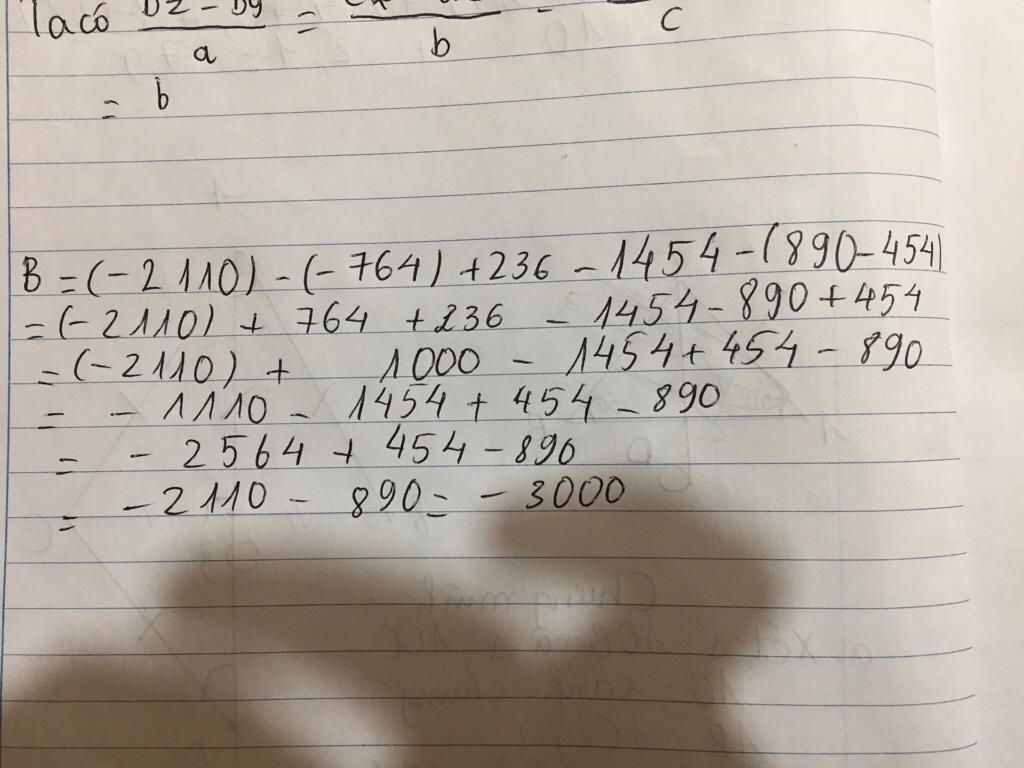 Ta có = =
a b c
= b
B = (-2110) - (-764) + 236 - 1454 - (890 - 454)
= (-2110) + 764 + 236 - 1454 - 890 + 454
= (-2110) + 1000 - 1454 + 454 - 890
= - 1110 - 1454 + 454 - 890
= - 2564 + 454 - 890
= - 2110 - 890 = - 3000